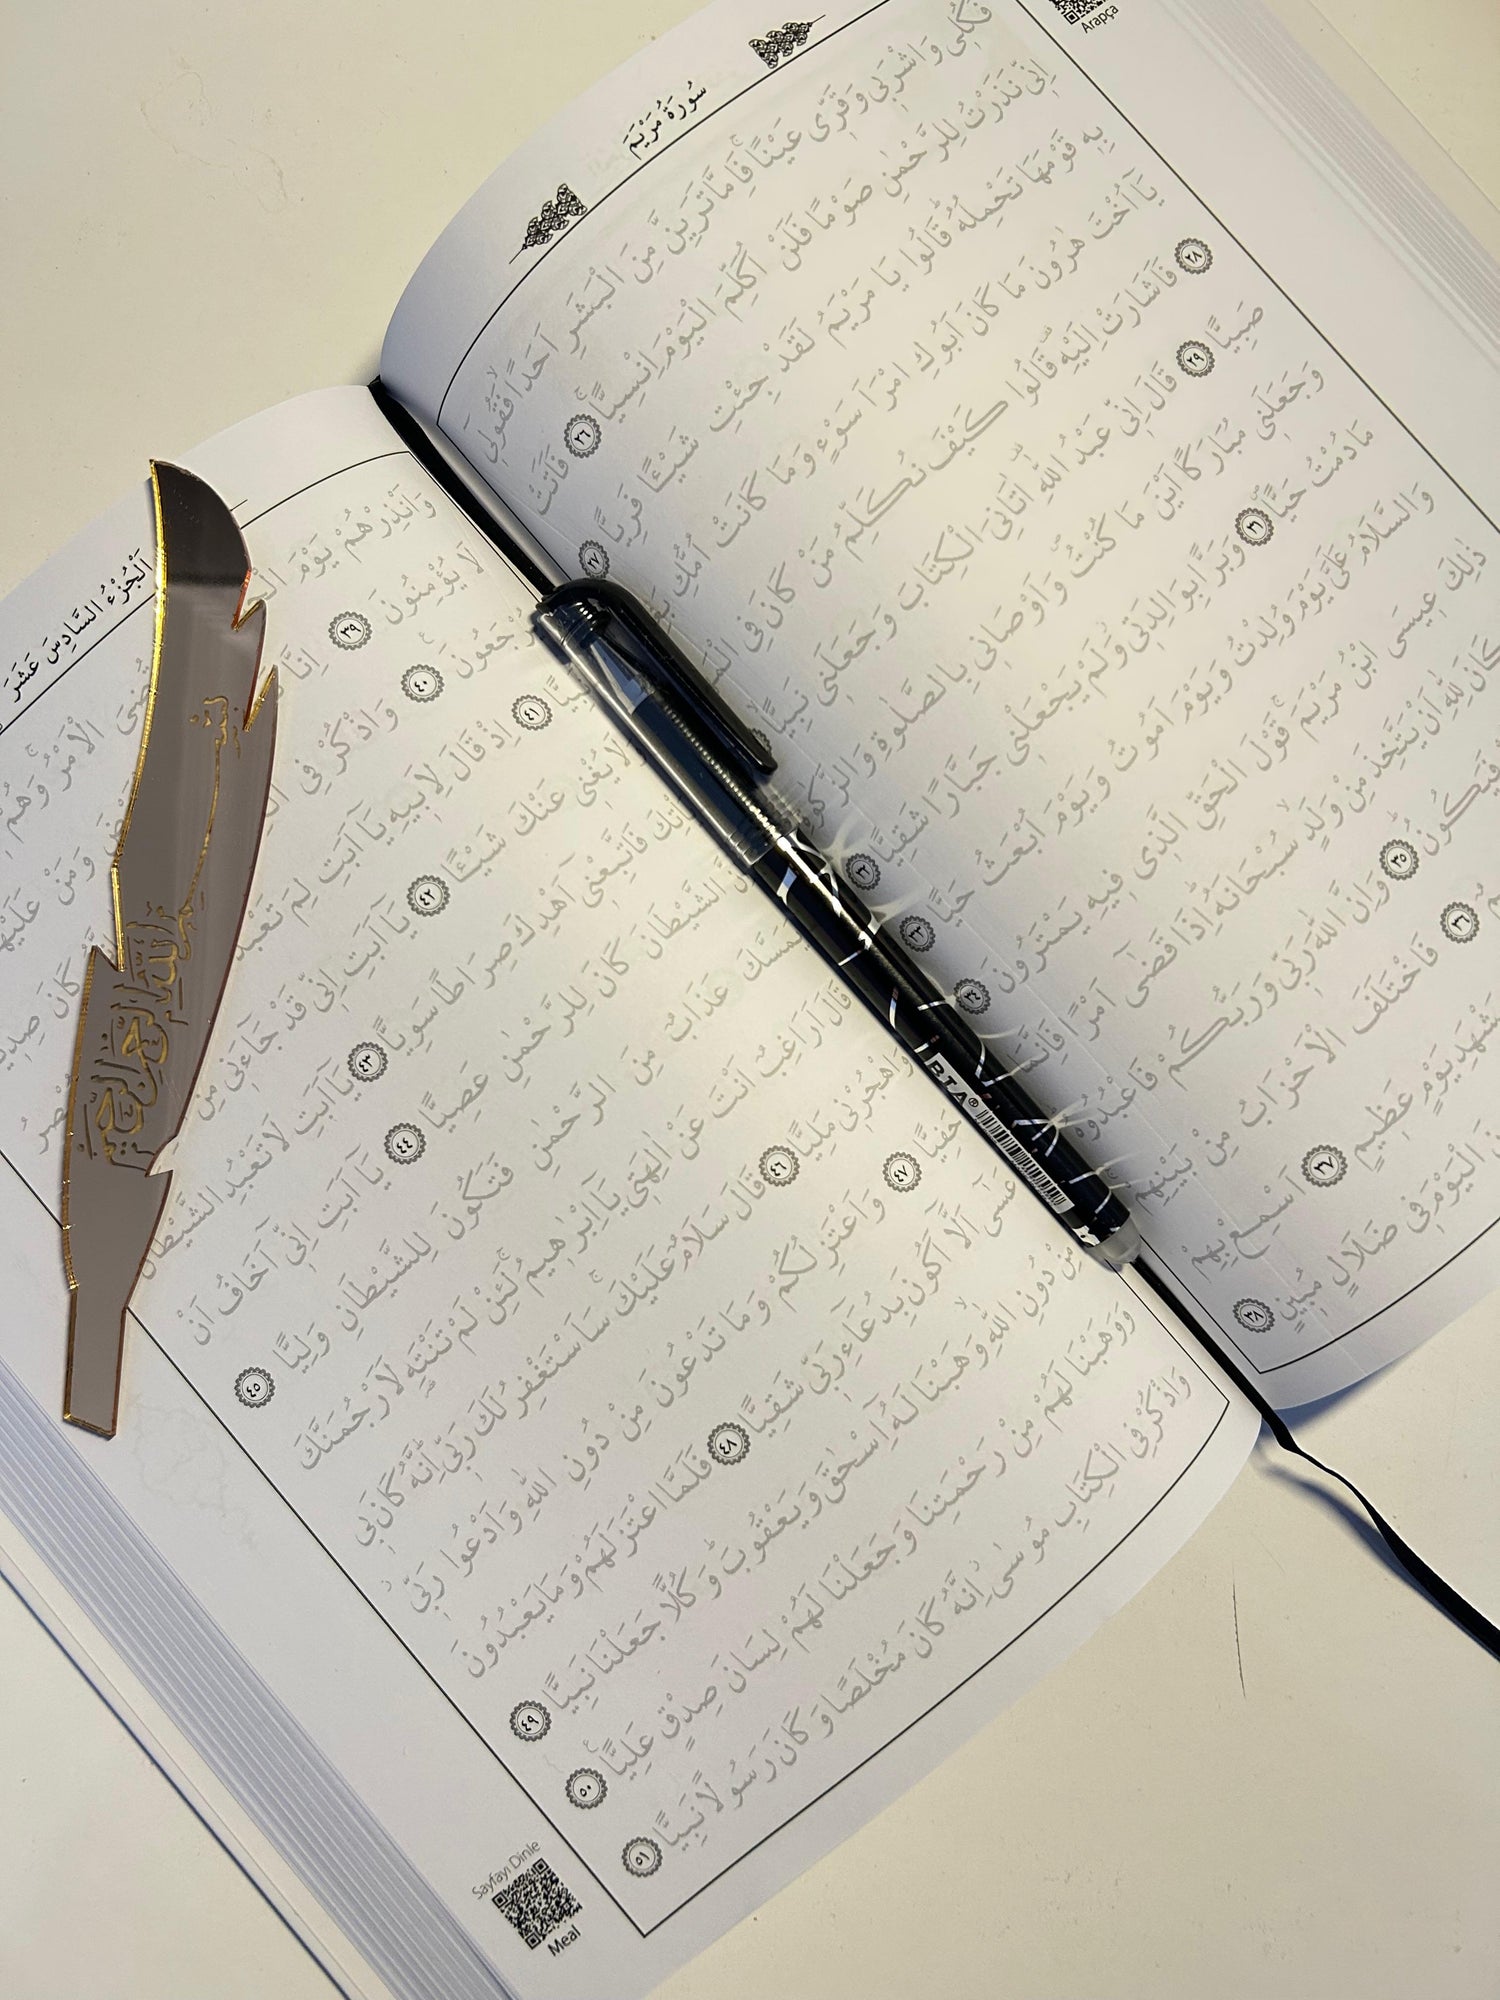 Arapça
سُورَةُ مَرْيَمَ
فَكُلِى وَاشْرَبِى وَقَرِّى عَيْنًا فَاِمَّا تَرَيِنَّ مِنَ الْبَشَرِ اَحَدًا فَقُولِى
اِنِّى نَذَرْتُ لِلرَّحْمٰنِ صَوْمًا فَلَنْ اُكَلِّمَ الْيَوْمَ اِنْسِيًّا ٢٦ فَاَتَتْ
بِهِ قَوْمَهَا تَحْمِلُهُ قَالُوا يَا مَرْيَمُ لَقَدْ جِئْتِ شَيْـًٔا فَرِيًّا ٢٧
يَا اُخْتَ هٰرُونَ مَا كَانَ اَبُوكِ امْرَاَ سَوْءٍ وَمَا كَانَتْ اُمُّكِ
٢٨ فَاَشَارَتْ اِلَيْهِ قَالُوا كَيْفَ نُكَلِّمُ مَنْ كَانَ فِى
صَبِيًّا ٢٩ قَالَ اِنِّى عَبْدُ اللّٰهِ اٰتَانِىَ الْكِتَابَ وَجَعَلَنِى نَبِيًّا
وَجَعَلَنِى مُبَارَكًا اَيْنَ مَا كُنْتُ وَاَوْصَانِى بِالصَّلٰوةِ وَالزَّكٰوةِ
مَا دُمْتُ حَيًّا ٣١ وَبَرًّا بِوَالِدَتِى وَلَمْ يَجْعَلْنِى جَبَّارًا شَقِيًّا ٣٢
وَالسَّلَامُ عَلَىَّ يَوْمَ وُلِدْتُ وَيَوْمَ اَمُوتُ وَيَوْمَ اُبْعَثُ حَيًّا ٣٣
ذٰلِكَ عِيسَى ابْنُ مَرْيَمَ قَوْلَ الْحَقِّ الَّذِى فِيهِ يَمْتَرُونَ ٣٤
كَانَ لِلّٰهِ اَنْ يَتَّخِذَ مِنْ وَلَدٍ سُبْحَانَهُ اِذَا قَضٰى اَمْرًا فَاِنَّمَا
فَيَكُونُ ٣٥ وَاِنَّ اللّٰهَ رَبِّى وَرَبُّكُمْ فَاعْبُدُوهُ
٣٦ فَاخْتَلَفَ الْاَحْزَابُ مِنْ بَيْنِهِمْ
يَوْمٍ عَظِيمٍ ٣٧ اَسْمِعْ بِهِمْ
الْيَوْمَ فِى ضَلَالٍ مُبِينٍ ٣٨
اَلْجُزْءُ السَّادِسَ عَشَرَ
وَاَنْذِرْهُمْ يَوْمَ الْاَمْرُ وَهُمْ
لَا يُؤْمِنُونَ ٣٩ اِنَّا وَمَنْ عَلَيْهَا
يُرْجَعُونَ ٤٠ وَاذْكُرْ فِى كَانَ
نَبِيًّا ٤١ اِذْ قَالَ لِاَبِيهِ يَا اَبَتِ لِمَ تَعْبُدُ
لَا يُغْنِى عَنْكَ شَيْـًٔا ٤٢ يَا اَبَتِ اِنِّى قَدْ جَاءَنِى مِنَ
فَاتَّبِعْنِى اَهْدِكَ صِرَاطًا سَوِيًّا ٤٣ يَا اَبَتِ لَا تَعْبُدِ الشَّيْطَانَ
الشَّيْطَانَ كَانَ لِلرَّحْمٰنِ عَصِيًّا ٤٤ يَا اَبَتِ اِنِّى اَخَافُ اَنْ
يَمَسَّكَ عَذَابٌ مِنَ الرَّحْمٰنِ فَتَكُونَ لِلشَّيْطَانِ وَلِيًّا ٤٥
قَالَ اَرَاغِبٌ اَنْتَ عَنْ اٰلِهَتِى يَا اِبْرٰهِيمُ لَئِنْ لَمْ تَنْتَهِ لَاَرْجُمَنَّكَ
وَاهْجُرْنِى مَلِيًّا ٤٦ قَالَ سَلَامٌ عَلَيْكَ سَاَسْتَغْفِرُ لَكَ رَبِّى اِنَّهُ كَانَ بِى
حَفِيًّا ٤٧ وَاَعْتَزِلُكُمْ وَمَا تَدْعُونَ مِنْ دُونِ اللّٰهِ وَاَدْعُوا رَبِّى
عَسٰى اَلَّا اَكُونَ بِدُعَاءِ رَبِّى شَقِيًّا ٤٨ فَلَمَّا اعْتَزَلَهُمْ وَمَا يَعْبُدُونَ
مِنْ دُونِ اللّٰهِ وَهَبْنَا لَهُ اِسْحٰقَ وَيَعْقُوبَ وَكُلًّا جَعَلْنَا نَبِيًّا ٤٩
وَوَهَبْنَا لَهُمْ مِنْ رَحْمَتِنَا وَجَعَلْنَا لَهُمْ لِسَانَ صِدْقٍ عَلِيًّا ٥٠
وَاذْكُرْ فِى الْكِتَابِ مُوسٰى اِنَّهُ كَانَ مُخْلَصًا وَكَانَ رَسُولًا نَبِيًّا ٥١
Sayfayı Dinle
Meal
بسم الله الرحمن الرحيم
BTA®